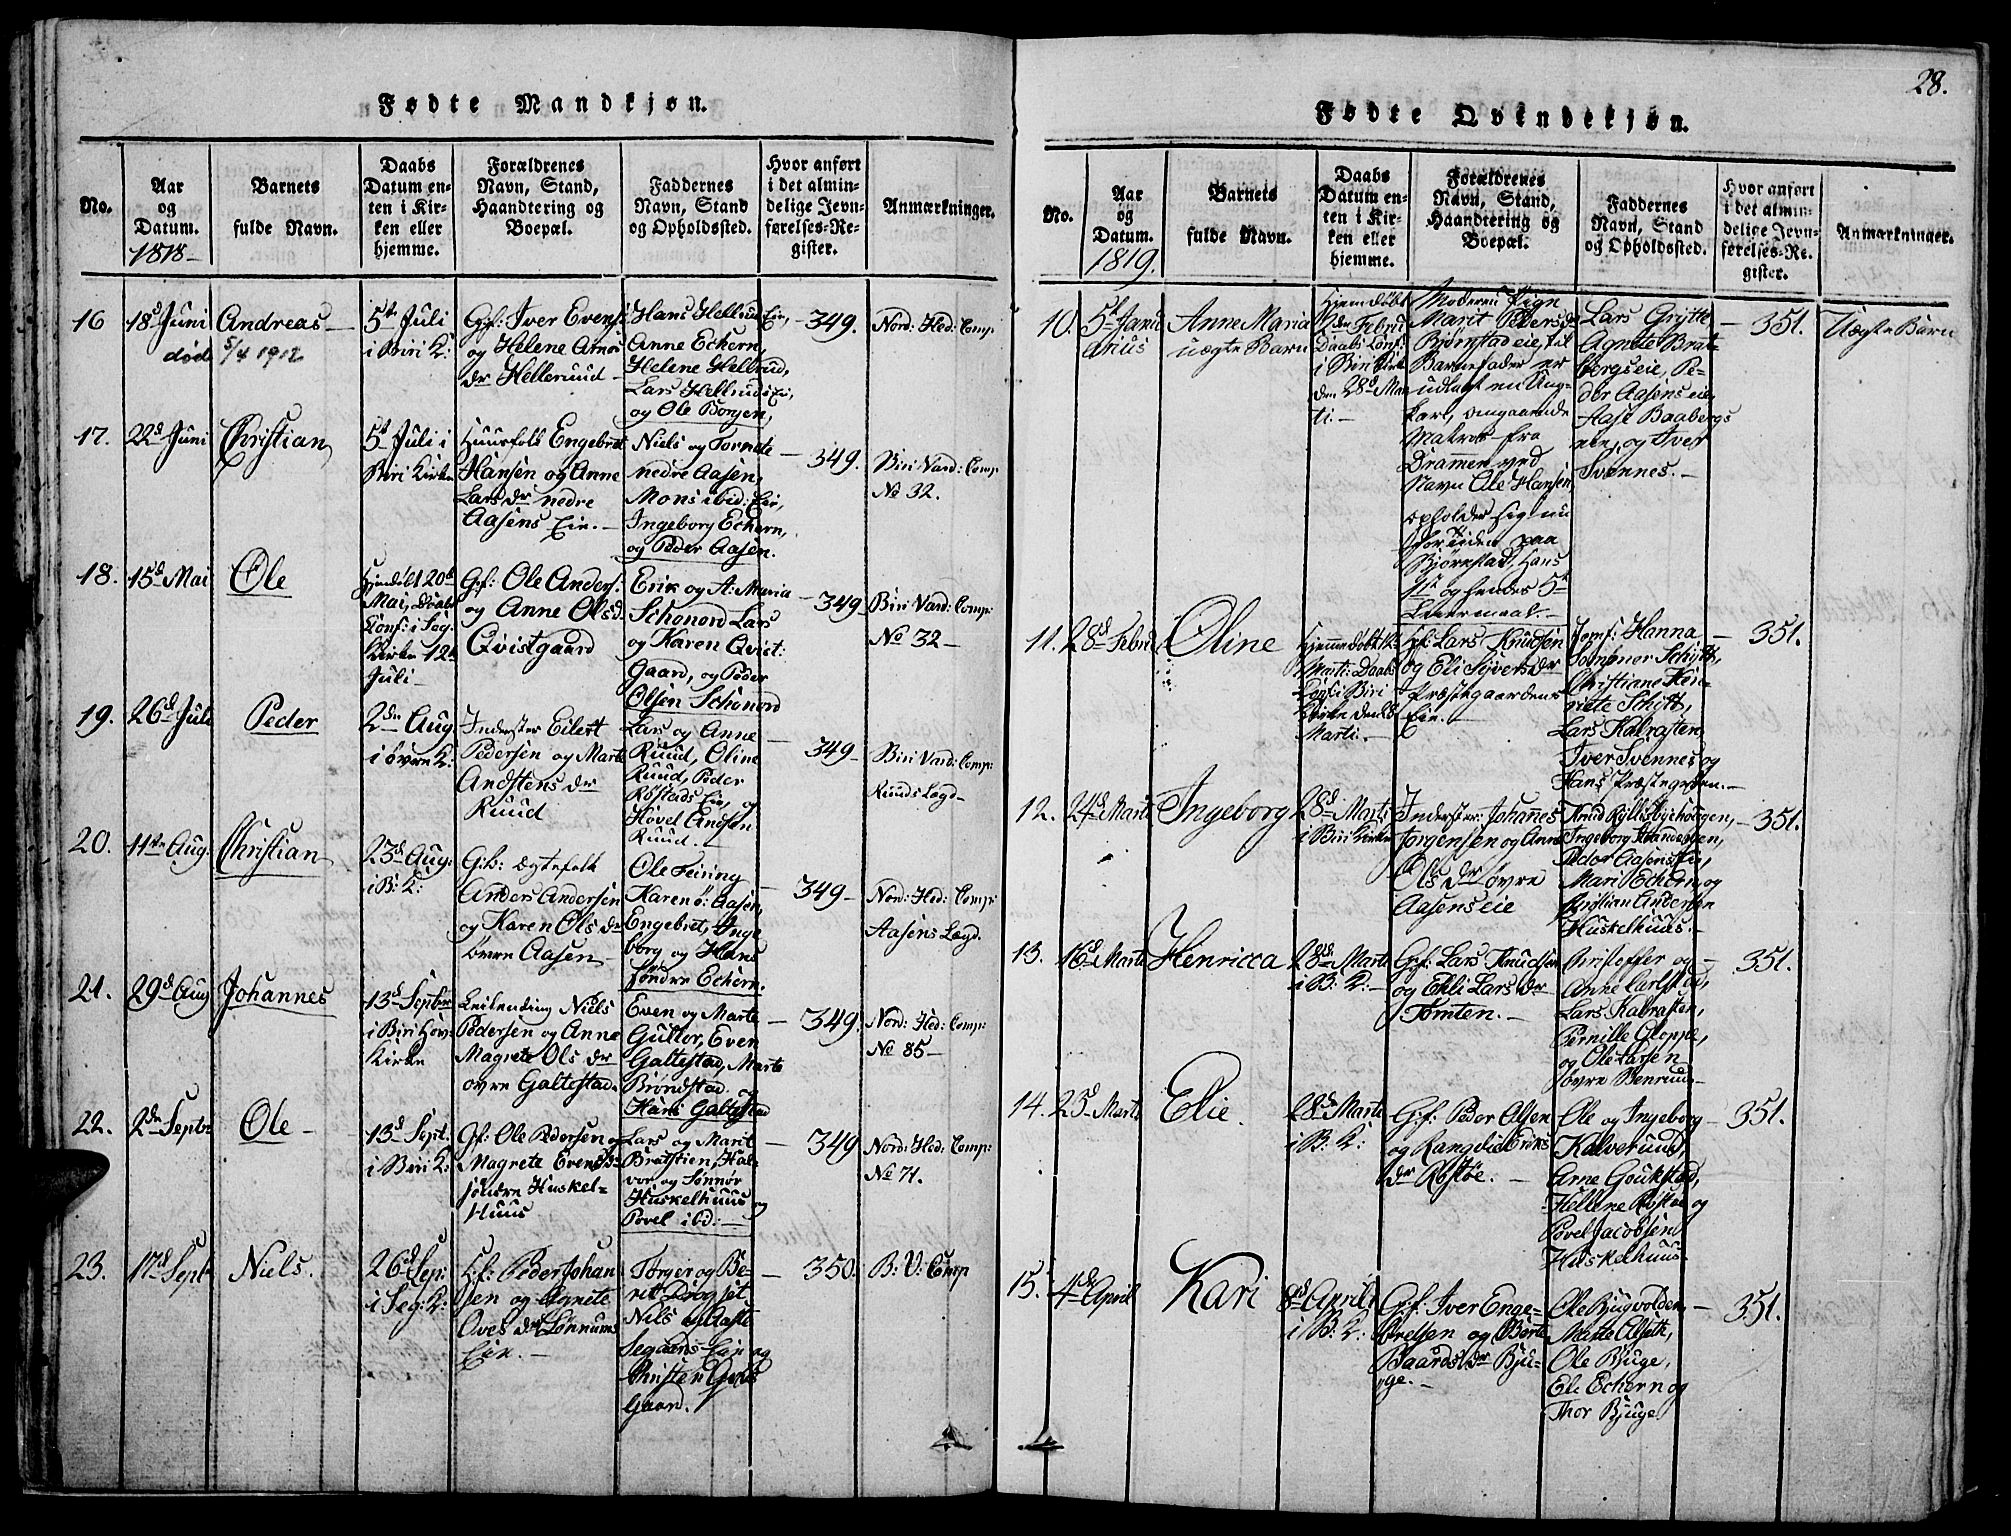 28.
Fødte Mandkjøn.
No.
Aar
og
Datum.
1818-
Barnets
fulde Navn.
Daabs
Datum en-
ten i Kir-
ken eller
hjemme.
Forældrenes
Navn, Stand,
Haandtering og
Boepæl.
Faddernes
Navn, Stand
og Opholdssted.
Hvor anført
i det almin-
delige Jevn-
førelses-Re-
gister.
Anmærkninger.
16
18d Juni
død
Andreas
5/4 1912
5te Juli
i Biri K:
Gf: Iver Evens:
og Helene Arnes
dr Hellerud
Hans Hellrud Eie,
Anne Echern,
Helene Hellrud,
Lars Hellruds Ei,
og Ole Borgen,
349.
Nord: Hed: Comp:
17.
22d Juni
Christian
5t Juli i
Biri Kirke
Huusfolk Engebret
Hansen og Anne
Lars dr nedre
Aasens Eie.
Niels og
nedre Aasen,
Mons ibid: Eie,
Ingeborg Echern,
og Peder Aasen.
349.
Biri Vard: Comp
No 32.
18.
15d Mai
Ole
Hjemdøbt 20d
Mai, Daab
Conf: i Seg.
Kirke 12te
Juli
Gf: Ole Anders:
og Anne Olsd:
Qvistgaard
Erik og A: Maria
Schonord Lars
og Karen Qvist:
Gaard, og Peder
Olsen Schonord
349
Biri Vard: Comp:
No 32-
19.
26d Juli
Peder
2den Aug
i øvre K:
Inderster Eilert
Pedersen og Marte
Andstens dr
Ruud
Lars og Anne
Ruud, Oline
Ruud, Peder
Røstads Eie, og
Hovel Endsen
Ruud.
349-
Biri Vard: Comp:
Ruuds Lægd-
20.
11te Aug.
Christian
23d Aug:
i B: K:
Gib: Ægtefolk
Anders Andersen
og Karen Ols dr
øvre Aasen
Ole Feiring
Karen ø: Aasen,
Engebret, Inge
borg og Hans
søndre Echern.
349-
Nord: Hed: Comp:
Aasens Lægd.
21.
29d Aug
Johannes
13d Septbr
i Biri Hov:
Kirke
Leilending Niels
Pedersen og Anne
Magrete Ols dr
øvre Galtestad.
Even og Marte
Gullor, Even
Galtestad, Marte
Brøndstad og
Hans Galtestad
349.
Nord: Hed: Comp:
No 85-
22.
2den Septbr
Ole
13d Sept.
i Biri K.
Gf: Ole Pedersen og
Magrete Evens dr
søndre Huskel=
Huus
Lars og Marit
Bratstien, Hal-
vor og Sønnør
Huskelhuus og
Povel ibd:
349
Nord: Hed: Comp:
No 71.
23.
17d Sept
Niels.
26d Sep:
i Seg: K:
Hf: Peder Johan
sen og Agnete
Oves dr Lønnums
Eie.
Torger og Be-
rit Drogset
Niels og Aaste
Segaards Eie og
350.
B: V: Comp
Fødte Qvindekjøn.
No.
Aar
og
Datum.
1819.
Barnets
fulde Navn.
Daabs
Datum en-
ten i Kir-
ken eller
hjemme.
Forældrenes
Navn, Stand,
Haandtering og
Boepæl.
Faddernes
Navn, Stand
og Opholdssted.
Hvor anført
i det almin-
delige Jevn-
førelses-Re-
gister.
Anmærkninger.
10.
5t Janu
arius
Anne Maria
uægte Barn
Hjemdøbt
2den Febru
Daabs Conf:
i Biri Kirk
den 28d Mar
ti.
Moderen Pign
Marit Peders dr
Bjørnstad eie, til
Barnefader er
udlagt en Ung-
karl, omgaaende
Matros fra
Drammen ved
Navn Ole Hansen,
opholder sig nu
for Tiden paa
Bjørnstad, Hans
1st og hendes 5t
Leiermaal.
Lars Grytte
Agnete Brat-
bergs eie, Pe-
der Aasens eie,
Aase Baabergs
eie, og Iver
Svennes.
351.
Uægte Barn
11.
28d Febru
Oline
Hjemmedøbt 12
Marti: Daabs
Conf: i Biri
Kirke den 28
Marti.
Hf: Lars Knudsen
og Eli Syvers dr
Præstegaardens
Eie.
Jomf: Hanna
Schytt,
Christiane Hen-
riete Schytt,
Lars Kalrasten,
Iver Svennes og
Hans Præstegrden.
351.
12.
24d Marti
Ingeborg
28d Marti
i Biri Kirke
Inderster: Johannes
Jørgensen og Anne
Ols dr øvre
Aasens eie
Knud Kyllisbyehougen,
Ingeborg Strandengen,
Peder Aasens Eie,
Mari Echern, og
Kristian Andersen
Huskelhuus.
351.
13.
16d Marti
Henricca
28d Marti
i B: K:
Gf: Lars Knudsen
og Ehli Lars dr
Tomten.
Cristoffer og
Anne Carlstad,
Lars Kalrasten,
Pernille Gloppe,
og Ole Larsen
øvre Benruud
351.
14.
25d Marti
Elie.
28d Marti
i B: K:
Gf: Peder Olsen
og Rangdi Eriks
dr Røstøe.
Ole og Ingeborg
Kalverud,
Arne Goukstad,
Hellene Røstøe og
Povel Jacobsen
Huskelhuus.
351.
15.
4de April
Kari
8d April
i B: K:
Gf: Iver Enge-
bretsen og Berte
Baards dr Bju-
ge.
Ole Bugvolden,
Marte Alseth,
Ole Bjuge,
Ele Echern og
Thor Bjuge
351.